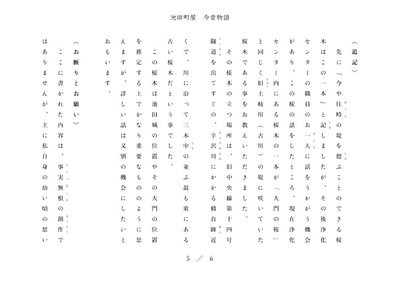 池田町屋　今昔物語
（追記）
先に『今や往時の堤を偲ぶことのできる桜
木はこの一本』と記しましたが、その後浄化
センターの職員のお一人に話をうかがう機会
があり、この桜の話をしたところ、現在浄化
センター内にある桜木の一本が「大門の桜」
と同じく旧土岐川（古川）の堤に咲いていた
桜木である事をお教えいただきました。
その桜木の立つ場所は、旧中央線第十四号
隧道を出てすぐの、辛沢川にかかる橋台跡近
く、川に沿って三本中の並ぶ最も東にある
古い桜木だという事でした。
この桜木は池田城の位置やその大門の位置
を推定する上でかなり重要なものになると考
えますが、詳しい話は又別な機会にしたいと
おもいます。
（お断りとお願い）
ここに書かれた内容は、事実無根の創作で
はありませんが、主に私自身の幼い頃の思い
5 ／ 6